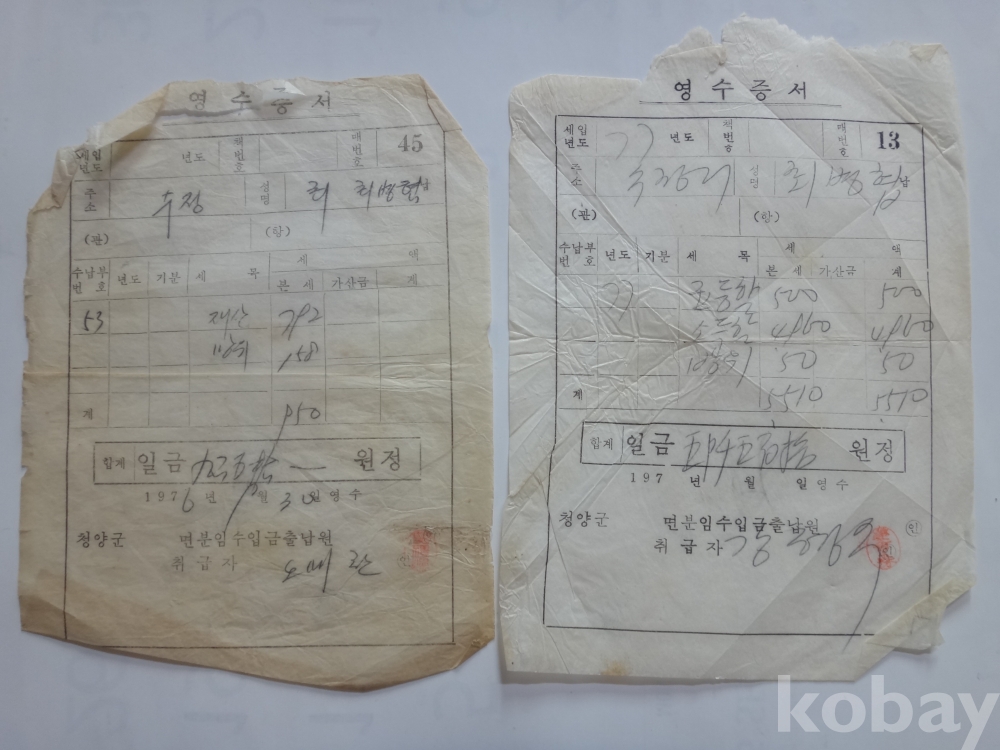 영수증서
세입 년도 년도 책번호 매번호 45
주소 수정 성명 최 최병혁 납
(관) (항)
수납부 번호 년도 기분 세 목 세 액
본 세 가산금 계
53 재산 792
방위 158
계 950
합계 일금 원정
1976년 월 30일 영수
청양군 면분임수입금출납원
취급자 인
영수증서
세입 년도 77 년도 책번호 매번호 13
주소 성명 최병혁 납
(관) (항)
수납부 번호 년도 기분 세 목 세 액
본 세 가산금 계
77 500 500
4,960 4,960
방위 50 50
계 5510 5510
합계 일금 원정
197 년 월 일 영수
청양군 면분임수입금출납원 인
취급자 인
kobay